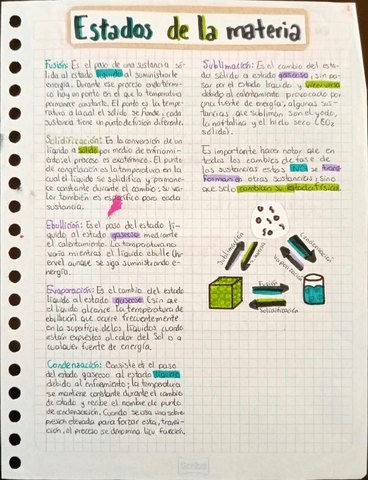 Estados de la materia
Fusión: Es el paso de una sustancia só-
lida al estado líquido al suministrarle
energía. Durante ese proceso endotérmi-
co hay un punto en el que la temperatura
permanece constante. El punto es la tempe-
ratura a la cual el sólido se funde; cada
sustancia tiene un punto de fusión diferente.
Solidificación: Es la conversión de un
líquido a sólido por medio de enfria-
miento; el proceso es exotérmico. El punto
de congelación es la temperatura en la
cual el líquido se solidifica y permane-
ce constante durante el cambio; su va-
lor también es específico para cada
sustancia.
Ebullición: Es el paso del estado lí-
quido al estado gaseoso mediante
el calentamiento. La temperatura no
varía mientras el líquido ebulle (hi-
erve) aunque se siga suministrando e-
nergía.
Evaporación: Es el cambio del estado
líquido al estado gaseoso sin que
el líquido alcance la temperatura de
ebullición que ocurre frecuentemente
en la superficie de los líquidos cuando
están expuestos al calor del Sol o a
cualquier fuente de energía.
Condensación: Consiste en el paso
del estado gaseoso al estado líquido
debido al enfriamiento; la temperatura
se mantiene constante durante el cambio
de estado y recibe el nombre de punto
de condensación. Cuando se usa una sobre
presión elevada para forzar esta, transi-
ción, el proceso se denomina
Sublimación: Es el cambio del esta-
do sólido a estado gaseoso, sin pa-
sar por el estado líquido y viceversa
debido al calentamiento provocado por
una fuente de energía; algunas sus-
tancias que subliman son el yodo,
la naftalina y el hielo seco (CO2
sólido).
Es importante hacer notar que en
todos los cambios de fase de
las sustancias estas NO se trans-
forman en otras sustancias, sino
que solo cambian su estado físico.
Sublimación
Condensación
Vaporización
Fusión
Solidificación